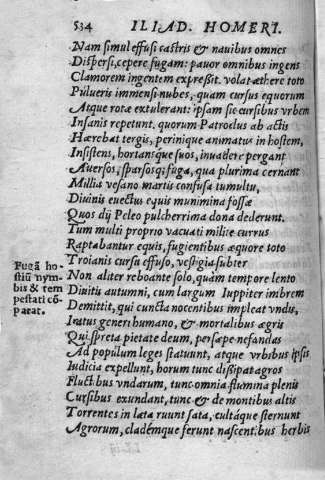 534 ILIAD. HOMERI.
Nam simul effusi castris & nauibus omnes
Dispersi, cepere fugam: pauor omnibus ingens
Clamorem ingentem expreßit. volat æthere toto
Pulueris immensi nubes, quam cursus equorum
Atque rotæ extulerant: ipsam sic cursibus vrbem
Insanis repetunt. quorum Patroclus ab actis
Hærebat tergis, perinique animatus in hostem,
Insistens, hortansque suos, inuadere pergant
Auersos, sparsosq; fuga, qua plurima cernant
Millia vesano martis confusa tumultu,
Diuinis euectus equis munimina fossæ
Quos dij Peleo pulcherrima dona dederunt.
Tum multi proprio vacuati milite currus
Raptabantur equis, fugientibus æquore toto
Troianis cursu effuso, vestigia subter
Non aliter reboante solo, quàm tempore lento
Diuitis autumni, cum largum Iuppiter imbrem
Demittit, qui cuncta nocentibus impleat vndis,
Iratus generi humano, & mortalibus ægris
Qui spreta pietate deum, persæpe nefandas
Ad populum leges statuunt, atque vrbibus ipsis
Iudicia expellunt, horum tunc dißipat agros
Fluctibus vndarum, tunc omnia flumina plenis
Cursibus exundant, tunc & de montibus altis
Torrentes in læta ruunt sata, cultáque sternunt
Agrorum, cladémque ferunt nascentibus herbis
Fugā ho-
stiū nym-
bis & tem
pestati cō-
parat.